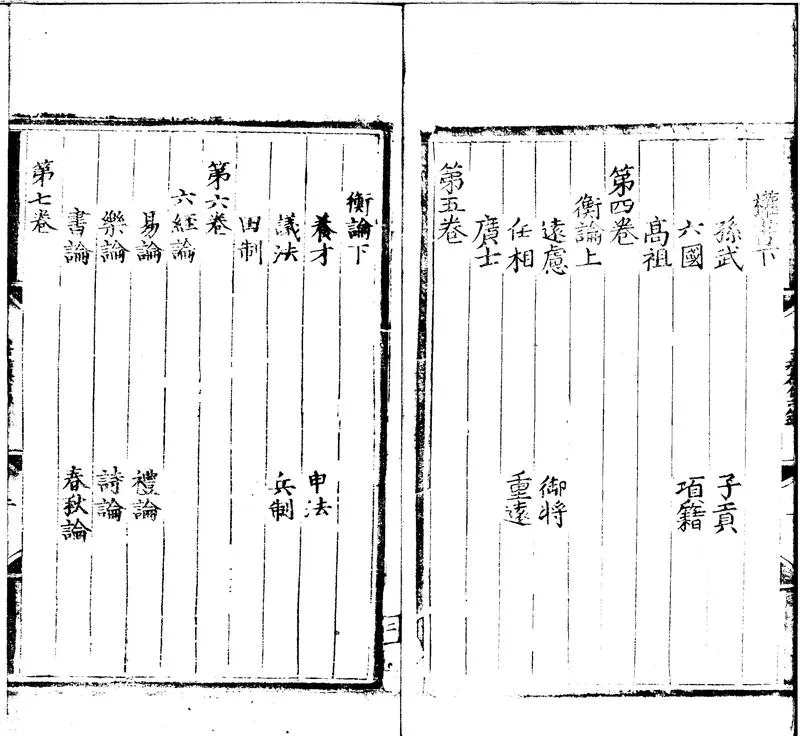 權書下
孫武　子貢
六國　項籍
高祖
第四卷
衡論上
遠慮　御將
任相　重遠
廣士
第五卷
衡論下
養才　申法
議法　兵制
田制
第六卷
六經論
易論　禮論
樂論　詩論
書論　春秋論
第七卷
三